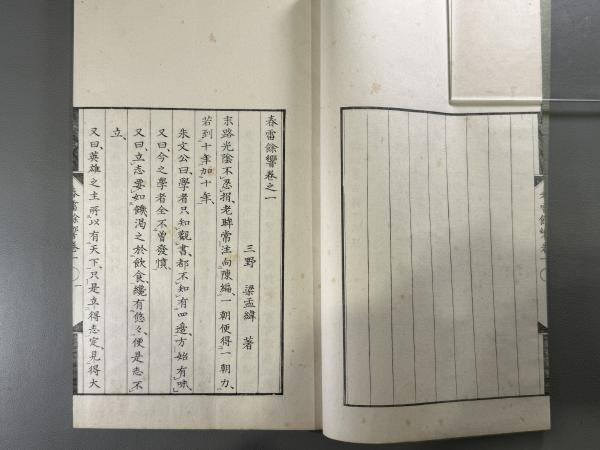 春雷餘響卷之一
三野 梁孟緯 著
末路光陰不忍捐、老眸常注向陳編、一朝便得一朝力、
若到十年加十年、
朱文公曰、學者只知觀書、都不知有四邊、方始有味、
又曰、今之學者全不曾發憤、
又曰、立志要如饑渴之於飲食、纔有悠々、便是志不
立、
又曰、英雄之主所以有天下、只是立得志定、見得大
春雷餘響卷一 〇 一